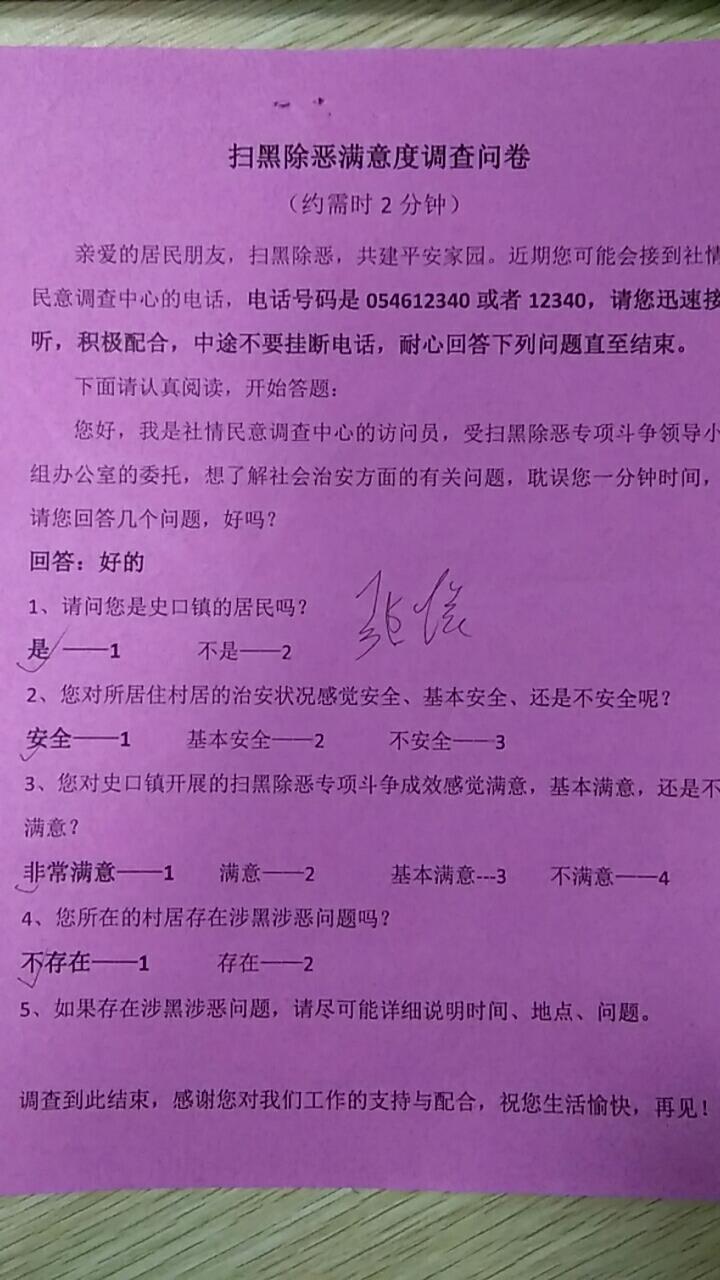 扫黑除恶满意度调查问卷
（约需时 2 分钟）
亲爱的居民朋友，扫黑除恶，共建平安家园。近期您可能会接到社情
民意调查中心的电话，电话号码是 054612340 或者 12340，请您迅速接
听，积极配合，中途不要挂断电话，耐心回答下列问题直至结束。
下面请认真阅读，开始答题：
您好，我是社情民意调查中心的访问员，受扫黑除恶专项斗争领导小
组办公室的委托，想了解社会治安方面的有关问题，耽误您一分钟时间，
请您回答几个问题，好吗？
回答：好的
1、请问您是史口镇的居民吗？
是——1 不是——2
2、您对所居住村居的治安状况感觉安全、基本安全、还是不安全呢？
安全——1 基本安全——2 不安全——3
3、您对史口镇开展的扫黑除恶专项斗争成效感觉满意，基本满意，还是不
满意？
非常满意——1 满意——2 基本满意---3 不满意——4
4、您所在的村居存在涉黑涉恶问题吗？
不存在——1 存在——2
5、如果存在涉黑涉恶问题，请尽可能详细说明时间、地点、问题。
调查到此结束，感谢您对我们工作的支持与配合，祝您生活愉快，再见！